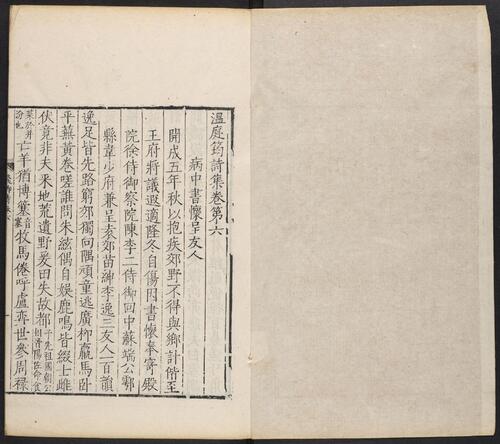 溫庭筠詩集卷第六
病中書懷呈友人
開成五年秋以抱疾郊野不得與鄉計偕至
王府將議遐適隆冬自傷因書懷奉寄殿
院徐侍御察院陳李二侍御回中蘇端公鄠
縣韋少府兼呈袁郊苗紳李逸三友人一百韻
逸足皆先路窮郊獨向隅頑童逃廣柳羸馬臥
平蕪黃卷嗟誰問朱絃偶自娛鹿鳴皆綴士雌
伏竟非夫采地荒遺野爰田失故都予先祖國朝公相晉陽佐命食
菜於并汾也亡羊猶博簺音塞牧馬倦呼盧弈世參周祿